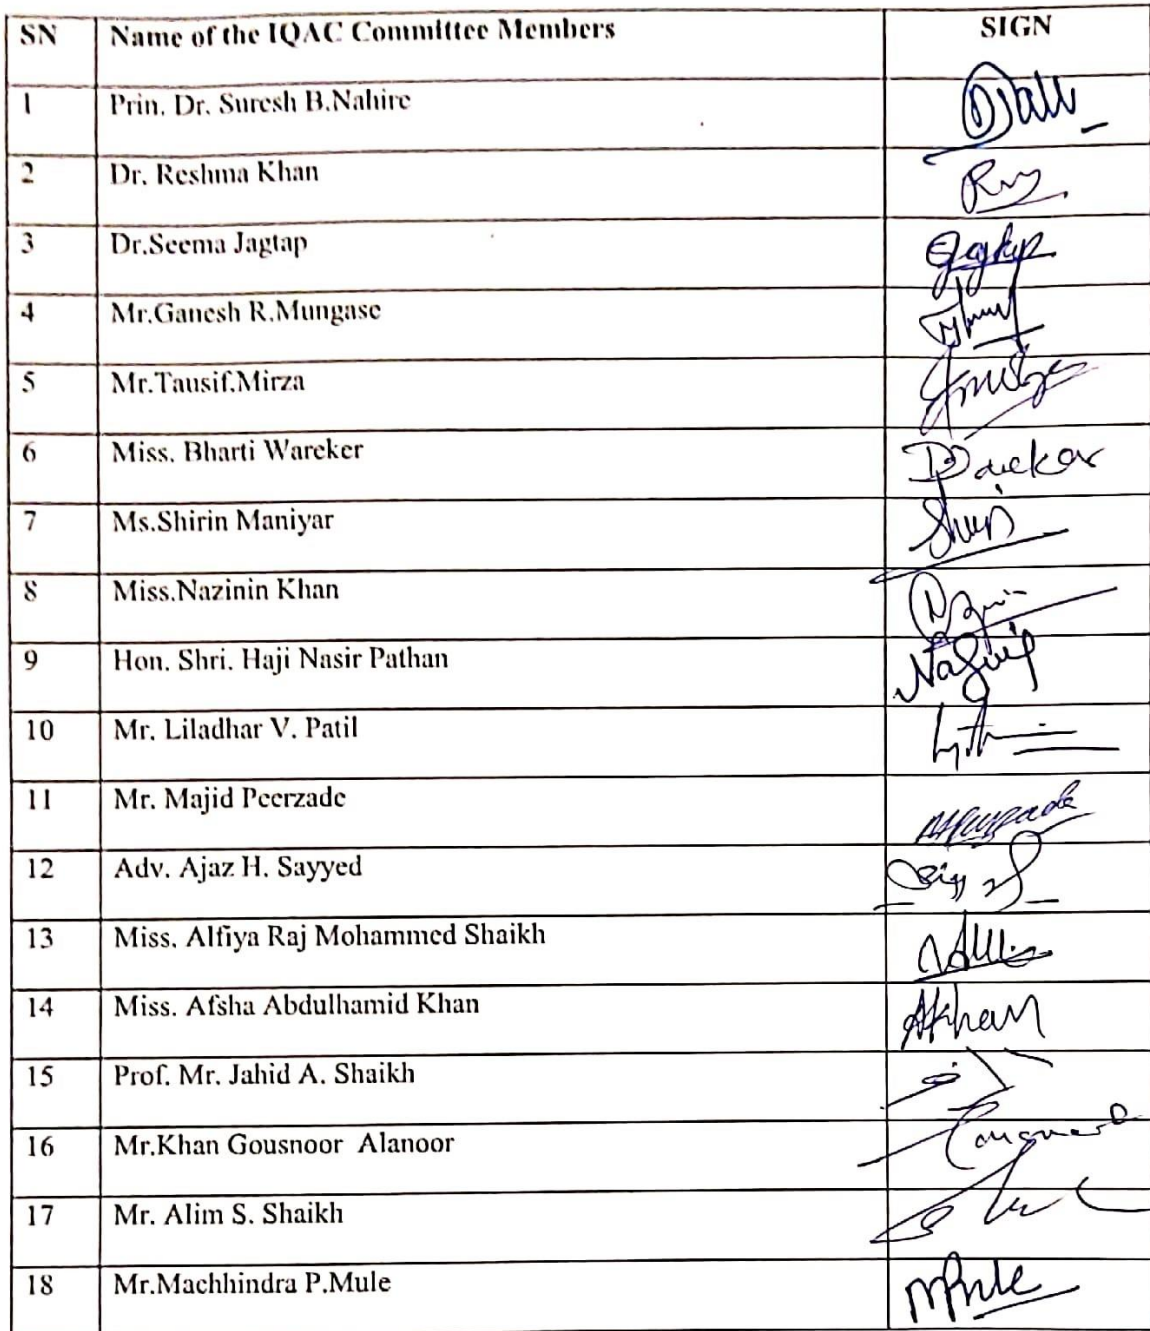 SN Name of the IQAC Committee Members SIGN
1 Prin. Dr. Suresh B.Nahire
2 Dr. Reshma Khan
3 Dr.Seema Jagtap
4 Mr.Ganesh R.Mungase
5 Mr.Tausif.Mirza
6 Miss. Bharti Wareker
7 Ms.Shirin Maniyar
8 Miss.Nazinin Khan
9 Hon. Shri. Haji Nasir Pathan
10 Mr. Liladhar V. Patil
11 Mr. Majid Peerzade
12 Adv. Ajaz H. Sayyed
13 Miss. Alfiya Raj Mohammed Shaikh
14 Miss. Afsha Abdulhamid Khan AKhan
15 Prof. Mr. Jahid A. Shaikh
16 Mr.Khan Gousnoor Alanoor
17 Mr. Alim S. Shaikh
18 Mr.Machhindra P.Mule MPMule